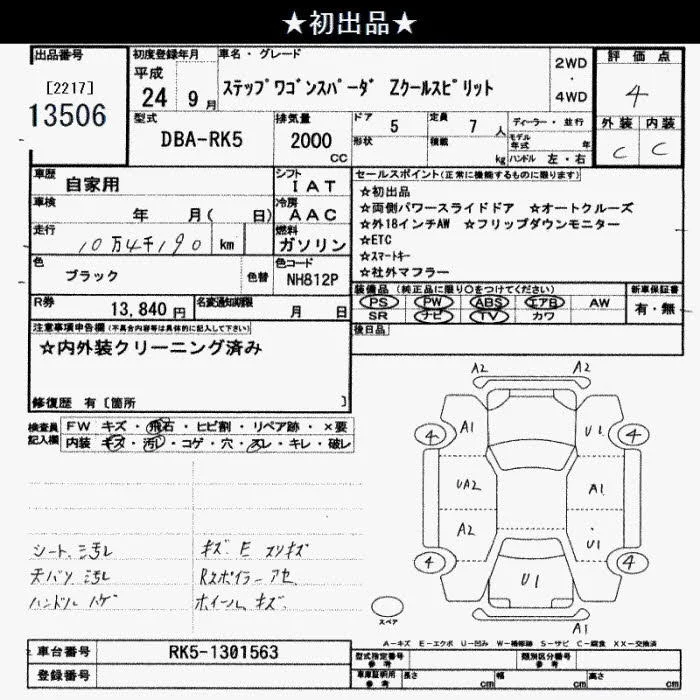 ★初出品★
出品番号 初度登録年月 車名・グレード 2WD ・ 4WD 評価点
[2217] 13506 平成 24年 9月 ステップワゴンスパーダ Zクールスピリット 4
型式 DBA-RK5 排気量 2000 CC ドア 5 定員 7人 ディーラー・並行 外装 内装
形状 積載 kg モデル年式 年 ハンドル 左・右 C C
車歴 自家用 シフト IAT セールスポイント(正常に機能するものに限ります)
車検 年 月( 日) 冷房 AAC ☆初出品
☆両側パワースライドドア ☆オートクルーズ
走行 10万4千190 km 燃料 ガソリン ☆外18インチAW ☆フリップダウンモニター
☆ETC
☆スマートキー
☆社外マフラー
色 ブラック 色替 色コード NH812P
装備品(純正品に限り○をつけてください) 新車保証書
PS PW ABS エアB AW 有・無
SR ナビ TV カワ
R券 13,840円 名変通知期限 月 日
後日品
注意事項申告欄(不具合内容等は具体的に記入して下さい)
☆内外装クリーニング済み
修復歴 有[箇所 ]
検査員記入欄 FW キズ・飛石・ヒビ割・リペア跡・×要
内装 キズ・汚れ・コゲ・穴・スレ・キレ・破レ
A2 A2
4 A1 U1 4
UA2 A1
A2 U1
4 U1 4
A1
シート、ミ汚レ キズ E スリキズ
天バリ ミ汚レ Rスポイラー アセ
ハンドル ハゲ ホイール、キズ
スペア
A-キズ E-エクボ U-凹み W-補修跡 S-サビ C-腐食 XX-交換済
車台番号 RK5-1301563
登録番号
型式指定番号 参考 類別区分番号 参考
車庫証明用 参考 長さ cm 幅 cm 高さ cm